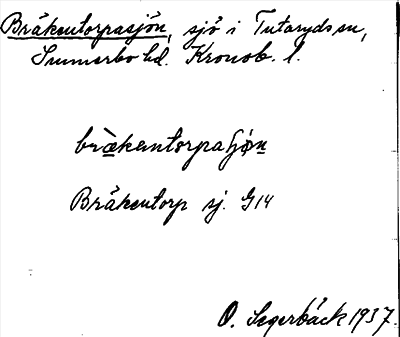 Bråkentorpasjön, sjö i Tutaryds sn,
Sunnerbo hd. Kronob. l.
brå̀kentorpaʃjøn
Bråkentorp sj. G14
O. Segerbäck 1937.